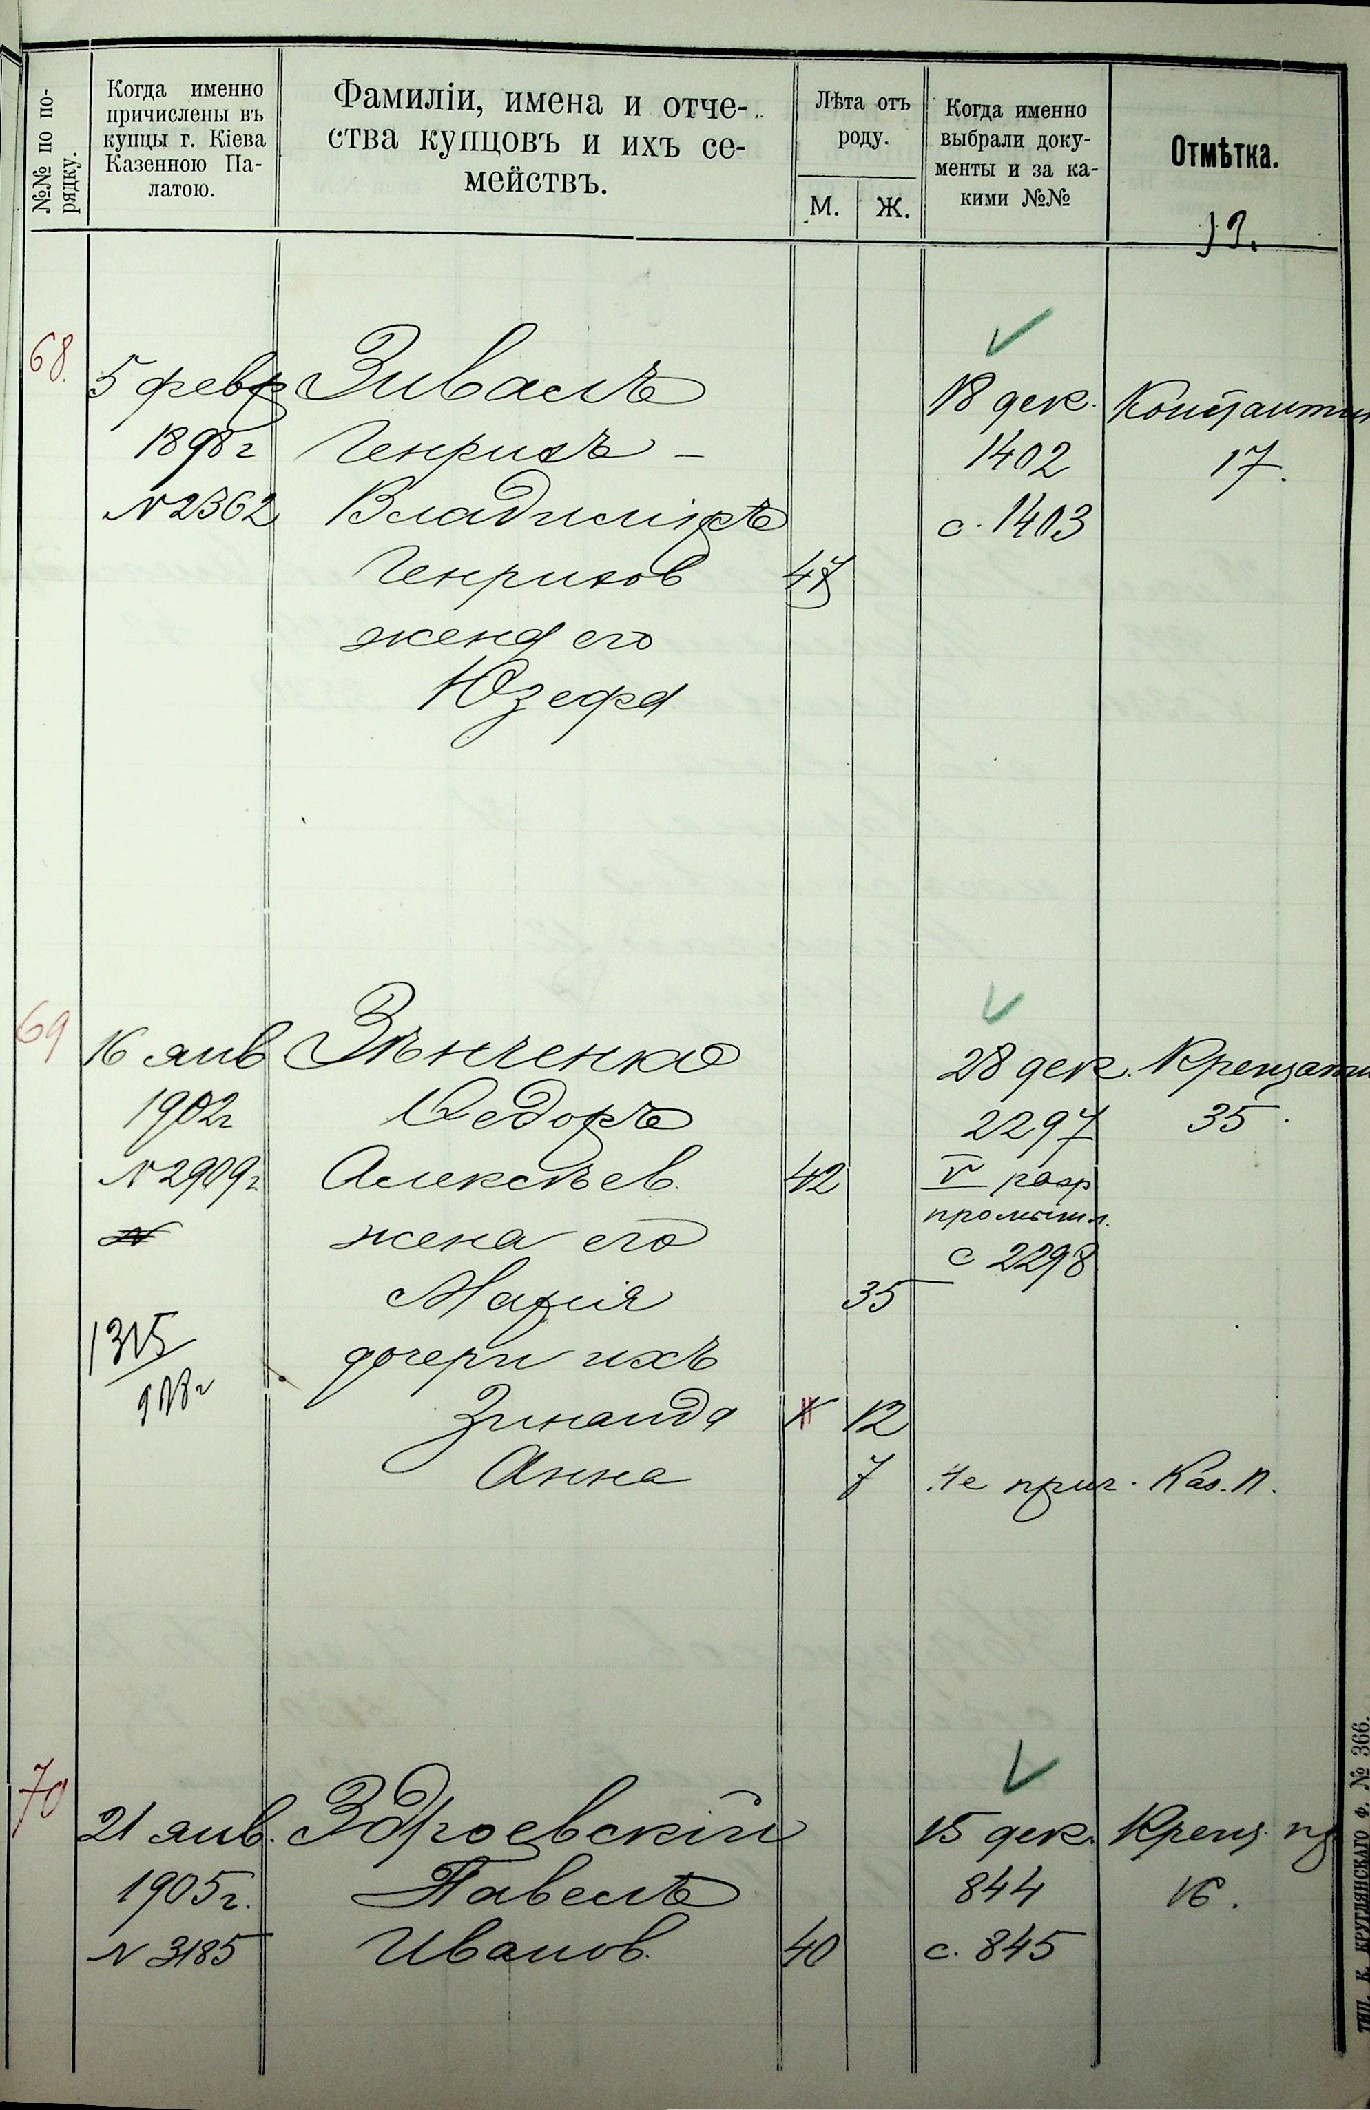 №№ по по-
рядку.
Когда именно
причислены въ
купцы г. Кіева
Казенною Па-
латою.
Фамиліи, имена и отче-
ства купцовъ и ихъ се-
мействъ.
Лѣта отъ
роду.
М.
Ж.
Когда именно
выбрали доку-
менты и за ка-
кими №№
Отмѣтка.
68.
5 февр
1898 г
N 2362
Зиваль
Генрихъ –
Владиміръ
Генрихов
47
жена его
Юзефа
18 дек.
1402
с. 1403
Константин
17.
69
16 янв
1902 г
N 2909 г
Зѣнченко
Ѳедоръ
Алексѣев.
42
жена его
Марія
35
дочери ихъ
Зинаида
12
Анна
7
28 дек.
2297
V разр
промышл.
с 2298
Крещатик
35.
Каз. П.
70
21 янв.
1905 г.
N 3185
Здроевскій
Павелъ
Иванов.
40
15 дек.
844
с. 845
Крещ.
16.
ТИП. К. КРУГЛЯНСКАГО Ф. № 366.